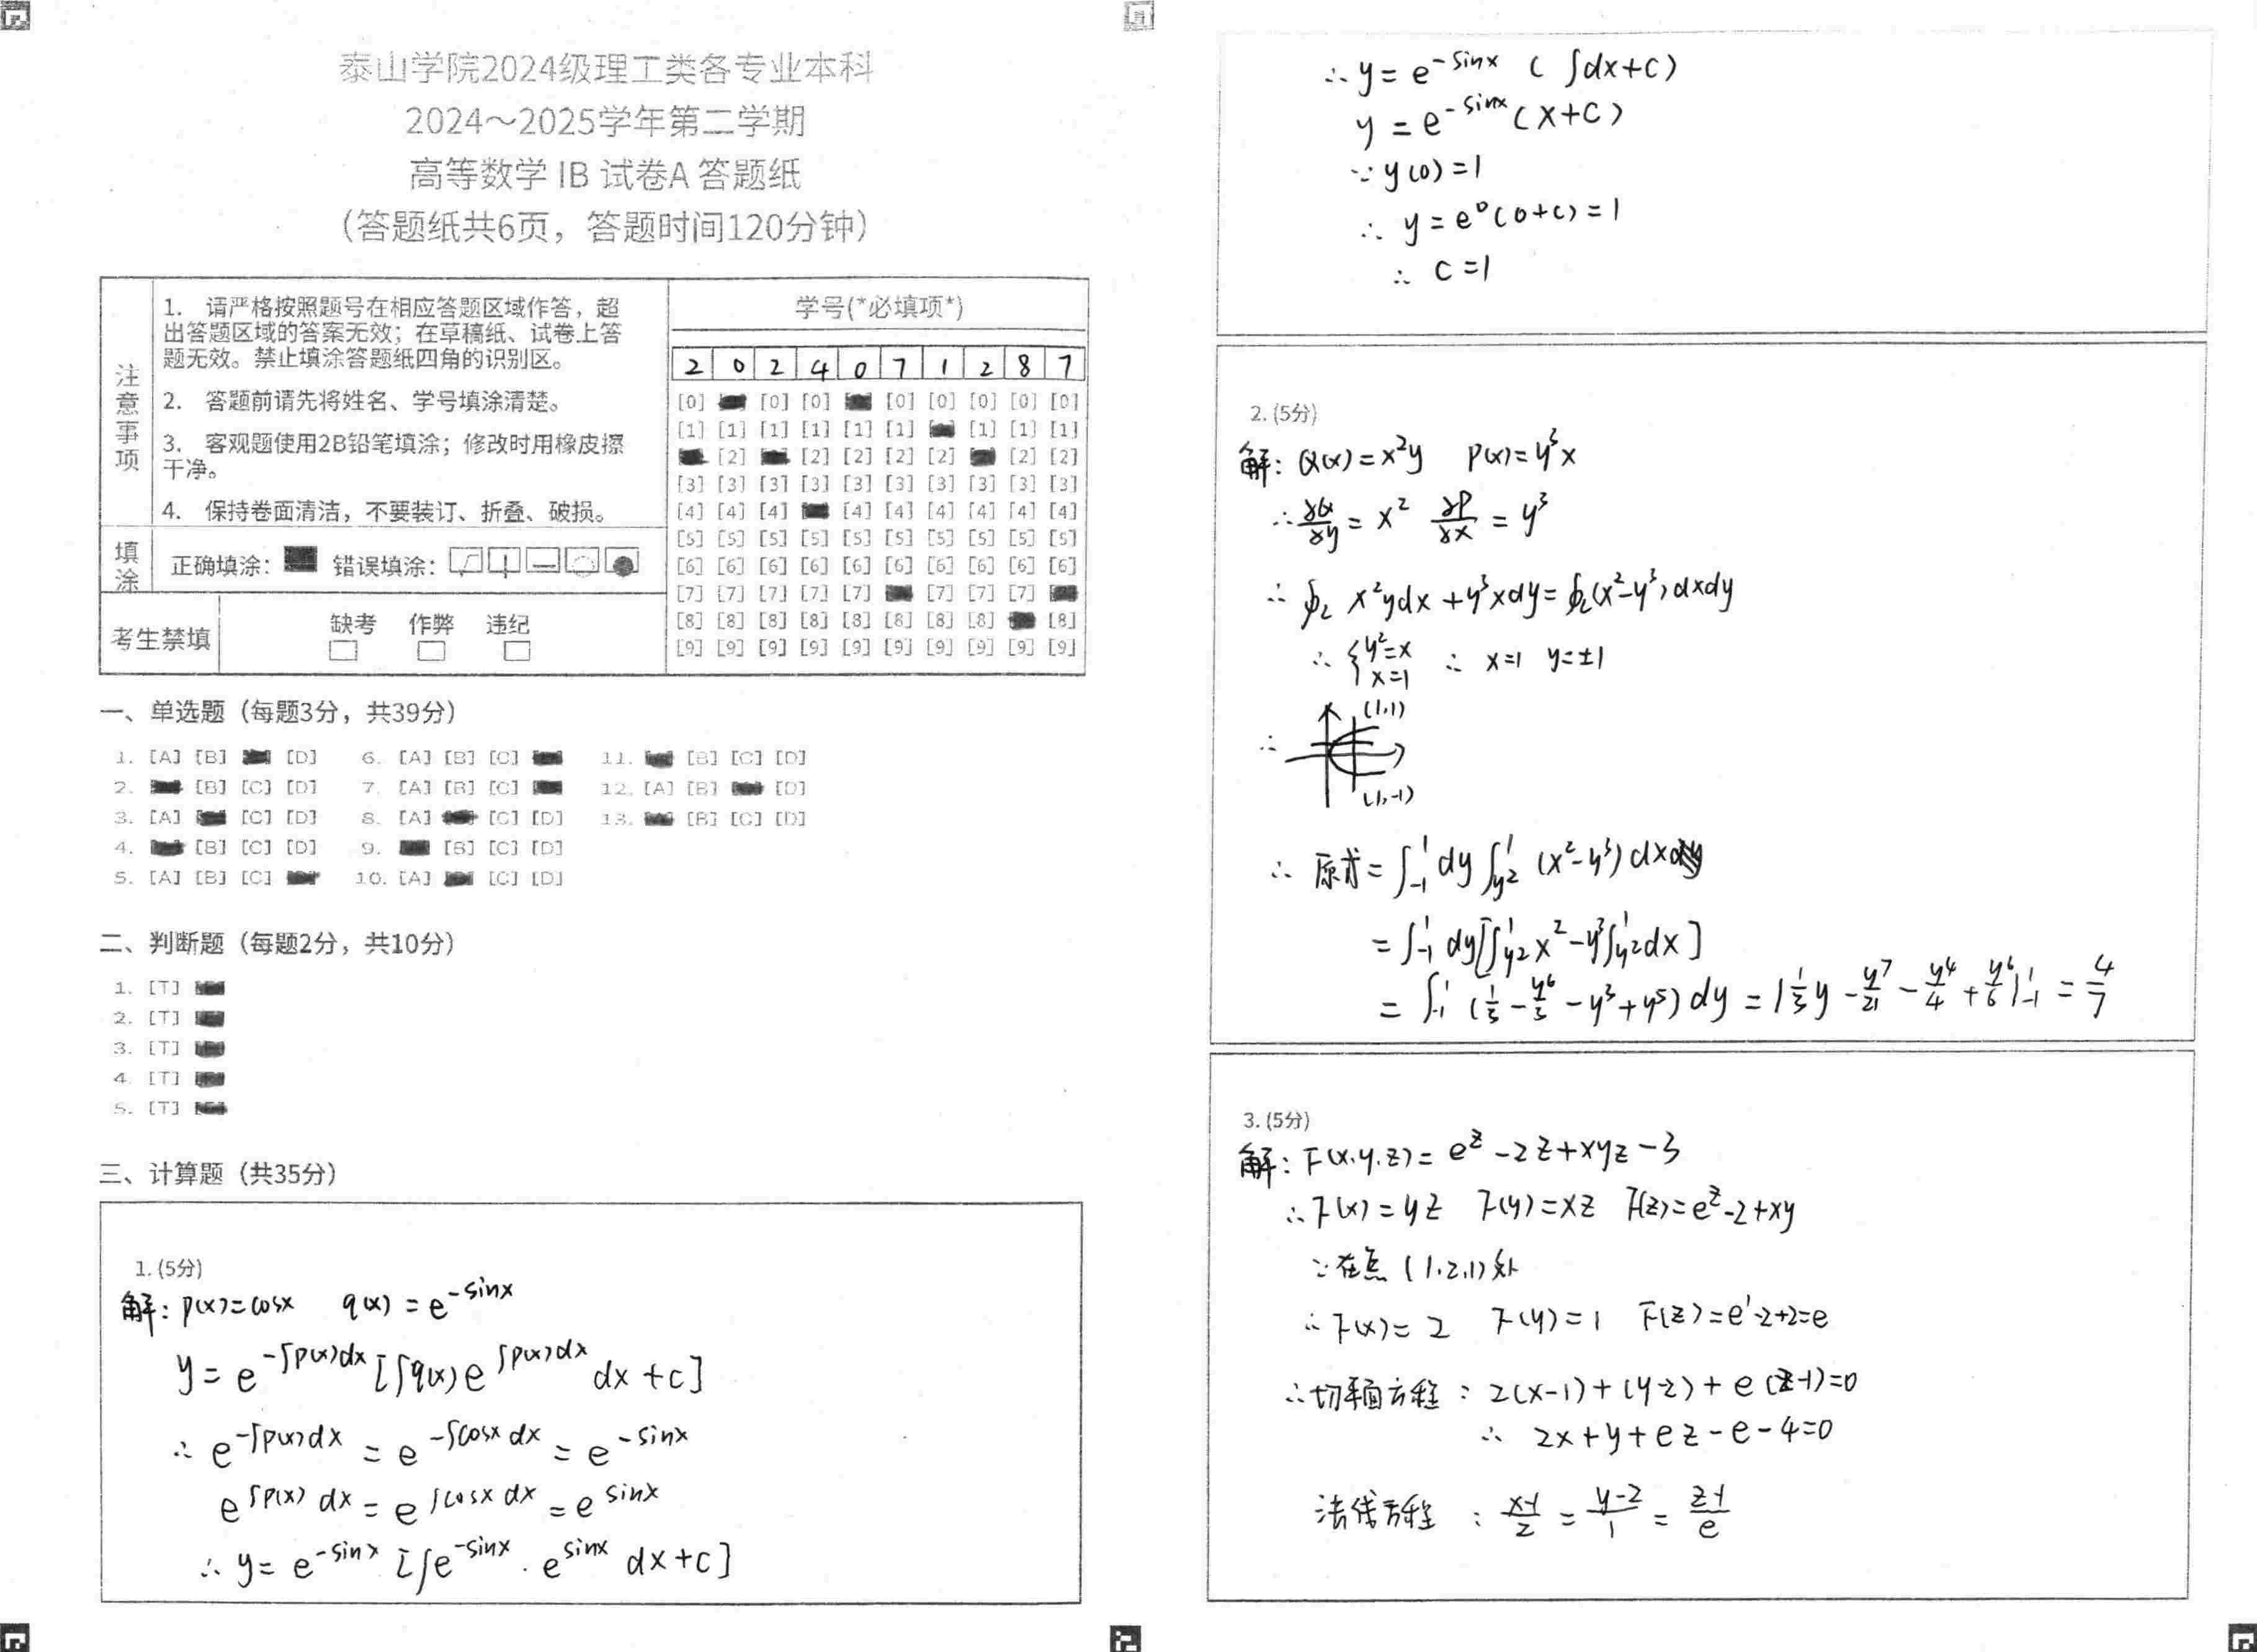 泰山学院2024级理工类各专业本科
2024～2025学年第二学期
高等数学 IB 试卷A 答题纸
（答题纸共6页，答题时间120分钟）
注意事项
1. 请严格按照题号在相应答题区域作答，超
出答题区域的答案无效；在草稿纸、试卷上答
题无效。禁止填涂答题纸四角的识别区。
2. 答题前请先将姓名、学号填涂清楚。
3. 客观题使用2B铅笔填涂；修改时用橡皮擦
干净。
4. 保持卷面清洁，不要装订、折叠、破损。
填涂
正确填涂： 错误填涂：
考生禁填
缺考 作弊 违纪
学号(*必填项*)
2 0 2 4 0 7 1 2 8 7
[0] [0] [0] [0] [0] [0] [0] [0]
[1] [1] [1] [1] [1] [1] [1] [1] [1]
[2] [2] [2] [2] [2] [2] [2]
[3] [3] [3] [3] [3] [3] [3] [3] [3] [3]
[4] [4] [4] [4] [4] [4] [4] [4] [4]
[5] [5] [5] [5] [5] [5] [5] [5] [5] [5]
[6] [6] [6] [6] [6] [6] [6] [6] [6] [6]
[7] [7] [7] [7] [7] [7] [7] [7]
[8] [8] [8] [8] [8] [8] [8] [8] [8]
[9] [9] [9] [9] [9] [9] [9] [9] [9] [9]
一、单选题（每题3分，共39分）
1. [A] [B] [D] 6. [A] [B] [C] 11. [B] [C] [D]
2. [B] [C] [D] 7. [A] [B] [C] 12. [A] [B] [D]
3. [A] [C] [D] 8. [A] [C] [D] 13. [B] [C] [D]
4. [B] [C] [D] 9. [B] [C] [D]
5. [A] [B] [C] 10. [A] [C] [D]
二、判断题（每题2分，共10分）
1. [T]
2. [T]
3. [T]
4. [T]
5. [T]
三、计算题（共35分）
1. (5分)
解: p(x)=cosx q(x)=e^{-sinx}
y=e^{-∫p(x)dx}[∫q(x)e^{∫p(x)dx}dx+c]
∴ e^{-∫p(x)dx}=e^{-∫cosxdx}=e^{-sinx}
e^{∫p(x)dx}=e^{∫cosxdx}=e^{sinx}
∴ y=e^{-sinx}[∫e^{-sinx}·e^{sinx}dx+c]
∴ y=e^{-sinx}(∫dx+c)
y=e^{-sinx}(x+c)
∵ y(0)=1
∴ y=e^0(0+c)=1
∴ c=1
2. (5分)
解: Q(x)=x²y P(x)=y³x
∴ ∂Q/∂y=x² ∂P/∂x=y³
∴ ∮_L x²ydx+y³xdy=∮_L(x²-y³)dxdy
∴ {y²=x x=1 ∴ x=1 y=±1
∴ (1,1)
(1,-1)
∴ 原式=∫_{-1}^{1}dy∫_{y²}^{1}(x²-y³)dx
=∫_{-1}^{1}dy[∫_{y²}^{1}x²-y³∫_{y²}^{1}dx]
=∫_{-1}^{1}(1/3-y⁶/3-y³+y⁵)dy=|1/3y-y⁷/21-y⁴/4+y⁶/6|_{-1}^{1}=4/7
3. (5分)
解: F(x.y.z)=e^z-2z+xyz-3
∴ F(x)=yz F(y)=xz F(z)=e^z-2+xy
∵ 在点(1.2.1)处
∴ F(x)=2 F(y)=1 F(z)=e¹-2+2=e
∴ 切平面方程: 2(x-1)+(y-2)+e(z-1)=0
∴ 2x+y+ez-e-4=0
法线方程: (x-1)/2=(y-2)/1=(z-1)/e